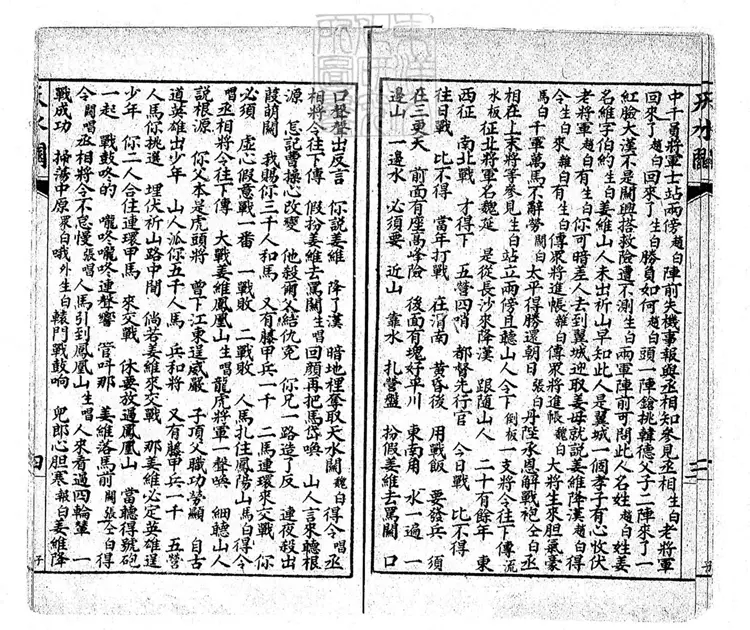 天水關
中千員將軍士站兩傍趙白陣前失機事報與丞相知參見丞相生白老將軍
回來了趙白回來了生白勝負如何趙白頭一陣鎗挑韓德父子二陣來了一
紅臉大漢不是關興搭救險遭不測生白兩軍陣前可問此人名姓趙白姓姜
名維字伯約生白姜維山人未出祈山早知此人是翼城一個孝子有心收伏
老將軍趙白有生白你可暗差人去到翼城迎取姜母就説姜維降漢趙白得
令生白來雜白有生白傳眾將進帳雜白傳眾將進帳魏白大將生來胆氣豪
馬白千軍萬馬不辭勞關白太平得勝還朝日張白丹陛承恩解戰袍仝白丞
相在上末將等參見生白站立兩傍且聽山人令下倒板一支將令往下傳流
水板征北將軍名魏延 是從長沙來降漢 跟隨山人 二十有餘年 東
西征 南北戰 才得下 五營四哨 都督先行官 今日戰 比不得
往日戰 比不得 當年打戰 在渭南 黃昏後 用戰飯 要發兵 須
在三更天 前面有座高峰險 後面有塊好平川 東南角 水一過 一
邊山 一邊水 必須要 近山 靠水 扎營盤 扮假姜維去罵關 口
口聲聲出反言 你説姜維 降了漢 暗地裡奪取天水關魏白得令唱丞
相將令往下傳 假扮姜維去罵關生唱回頭再把馬岱喚 山人言來聽根
源 怎記曹操心改變 他殺爾父結仇冤 你兄一路造了反 連夜殺出
葭萌關 我賜你三千人和馬 又有籐甲兵一千 二馬連環來交戰 你
必須 虛心假意戰一番 一戰敗 二戰敗 人馬扎住鳳陽山馬白得令
唱丞相將令往下傳 大戰姜維鳳凰山生唱龍虎將軍一聲喚 細聽山人
説根源 你父本是虎頭將 曾下江東逞威嚴 子頂父職功勞顯 自古
道英雄出少年 山人派你五千人馬 兵和將 又有籐甲兵一千 五營
人馬你挑選 埋伏祈山路中間 倘若姜維來交戰 那姜維必定英雄逞
少年 你二人合住連環甲馬 來交戰 休要放過鳳凰山 當聽得號砲
一起 戰鼓咚的 嚨咚嚨咚連聲響 管叫那 姜維落馬前關張仝白得
令關唱丞相將令不怠慢張唱人馬引到鳳凰山生唱人來看過四輪車 一
戰成功 掃蕩中原眾白哦外生白轅門戰鼓响 兜郎心胆寒報白姜維降
天水關
四